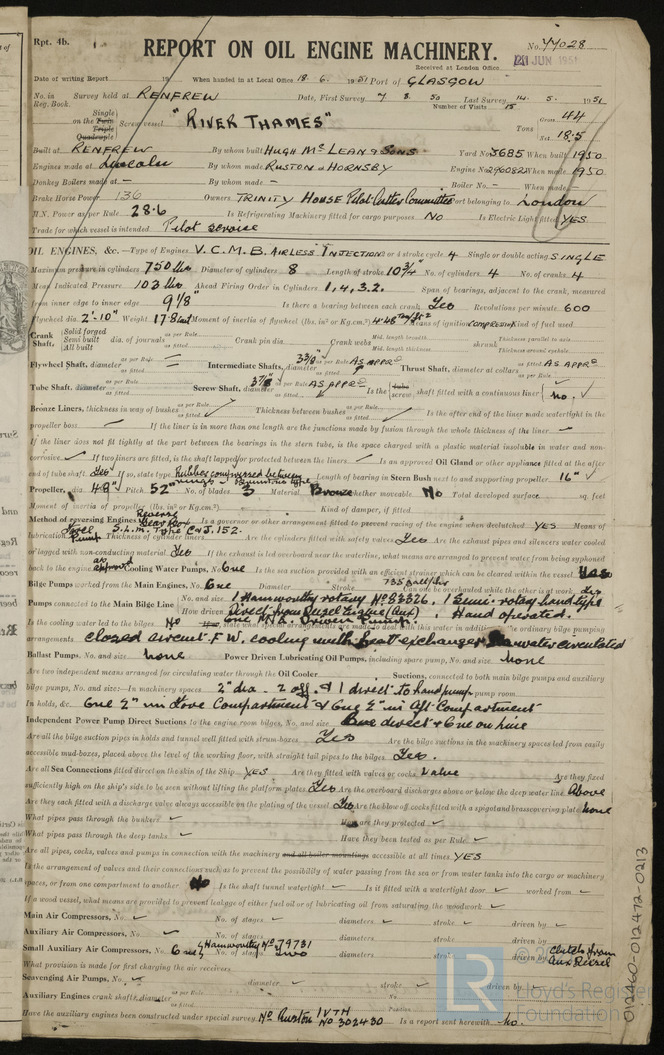 Rpt. 4b.
REPORT ON OIL ENGINE MACHINERY.
No. 77028
Received at London Office
20 JUN 1951
Date of writing Report 19 When handed in at Local Office 18. 6. 1951 Port of GLASGOW
No. in Reg. Book. Survey held at RENFREW Date, First Survey 7 8 50 Last Survey 14. 5. 1951
Number of Visits 15
Single on the Twin Triple Quadruple Screw vessel "RIVER THAMES" Tons Gross 44 Net 18.5
Built at RENFREW By whom built HUGH McLEAN & SONS Yard No 3685 When built 1950
Engines made at Lincoln By whom made RUSTON & HORNSBY Engine No. When made 1950
Donkey Boilers made at — By whom made — Boiler No. — When made —
Brake Horse Power 136 Owners TRINITY HOUSE Pilot Cutter Committee Port belonging to London
M.N. Power as per Rule 28.6 Is Refrigerating Machinery fitted for cargo purposes NO Is Electric Light fitted YES
Trade for which vessel is intended Pilot service
OIL ENGINES, &c.—Type of Engines V.C.M.B. AIRLESS INJECTION 2 or 4 stroke cycle 4 Single or double acting SINGLE
Maximum pressure in cylinders 750 lbs Diameter of cylinders 8 Length of stroke 10 3/4" No. of cylinders 4 No. of cranks 4
Mean Indicated Pressure 103 lbs Ahead Firing Order in Cylinders 1, 4, 3, 2. Span of bearings, adjacent to the crank, measured
from inner edge to inner edge 9 1/8" Is there a bearing between each crank Yes Revolutions per minute 600
Flywheel dia. 2'-10" Weight 17.8 cwt Moment of inertia of flywheel (lbs. in² or Kg.cm.²) Means of ignition COMPRESSION Kind of fuel used
Crank Shaft, Solid forged Semi built All built dia. of journals as per Rule as fitted Crank pin dia. Crank webs Mid. length breadth Mid. length thickness Thickness parallel to axis Thickness around eyehole
Flywheel Shaft, diameter as per Rule as fitted Intermediate Shafts, diameter 3 3/8" as per Rule as fitted AS APPRD Thrust Shaft, diameter at collars as per Rule as fitted AS APPRD
Tube Shaft, diameter as per Rule as fitted Screw Shaft, diameter 3 7/8" as per Rule as fitted AS APPRD Is the tube screw shaft fitted with a continuous liner no.
Bronze Liners, thickness in way of bushes as per Rule as fitted Thickness between bushes as per Rule as fitted Is the after end of the liner made watertight in the
propeller boss If the liner is in more than one length are the junctions made by fusion through the whole thickness of the liner
If the liner does not fit tightly at the part between the bearings in the stern tube, is the space charged with a plastic material insoluble in water and non-
corrosive If two liners are fitted, is the shaft lapped or protected between the liners Is an approved Oil Gland or other appliance fitted at the after
end of tube shaft Yes If so, state type Rubber compressed between rings Length of bearing in Stern Bush next to and supporting propeller 16"
Propeller, dia. 48" Pitch 52" No. of blades 3 Material Bronze whether moveable No Total developed surface sq. feet
Moment of inertia of propeller (lbs. in² or Kg.cm.²) Kind of damper, if fitted
Method of reversing Engines Reverse Gear Box Is a governor or other arrangement fitted to prevent racing of the engine when declutched YES Means of
lubrication Pump Thickness of cylinder liners Are the cylinders fitted with safety valves Yes Are the exhaust pipes and silencers water cooled
or lagged with non-conducting material Yes If the exhaust is led overboard near the waterline, what means are arranged to prevent water from being syphoned
back to the engine as approved Cooling Water Pumps, No. One Is the sea suction provided with an efficient strainer which can be cleared within the vessel Yes
Bilge Pumps worked from the Main Engines, No. One Diameter Stroke Can one be overhauled while the other is at work Yes
Pumps connected to the Main Bilge Line No. and size 1 Hamworthy rotary No 83826. 1 Semi-rotary hand type
How driven Direct from Diesel Engine (Aux) Hand operated.
Is the cooling water led to the bilges No
arrangements closed circuit F.W. cooling with heat exchanger Sea water circulated
Ballast Pumps, No. and size none Power Driven Lubricating Oil Pumps, including spare pump, No. and size none
Are two independent means arranged for circulating water through the Oil Cooler Suctions, connected to both main bilge pumps and auxiliary
bilge pumps, No. and size:—In machinery spaces 2" dia. - 2 off. & 1 direct to hand pump In pump room
In holds, &c. One 2" in Store Compartment & One 2" in Aft Compartment
Independent Power Pump Direct Suctions to the engine room bilges, No. and size One direct & One on line
Are all the bilge suction pipes in holds and tunnel well fitted with strum-boxes Yes Are the bilge suctions in the machinery spaces led from easily
accessible mud-boxes, placed above the level of the working floor, with straight tail pipes to the bilges Yes.
Are all Sea Connections fitted direct on the skin of the Ship YES Are they fitted with valves or cocks Valve Are they fixed
sufficiently high on the ship's side to be seen without lifting the platform plates Yes Are the overboard discharges above or below the deep water line Above
Are they each fitted with a discharge valve always accessible on the plating of the vessel Yes Are the blow off cocks fitted with a spigot and brass covering plate none
What pipes pass through the bunkers How are they protected
What pipes pass through the deep tanks Have they been tested as per Rule
Are all pipes, cocks, valves and pumps in connection with the machinery and all boiler mountings accessible at all times YES
Is the arrangement of valves and their connections such as to prevent the possibility of water passing from the sea or from water tanks into the cargo or machinery
spaces, or from one compartment to another Is the shaft tunnel watertight Is it fitted with a watertight door worked from
If a wood vessel, what means are provided to prevent leakage of either fuel oil or of lubricating oil from saturating the woodwork
Main Air Compressors, No. No. of stages diameters stroke driven by
Auxiliary Air Compressors, No. No. of stages diameters stroke driven by
Small Auxiliary Air Compressors, No. One Hamworthy No 79731 No. of stages Two diameters stroke driven by Clutch from Aux Diesel
What provision is made for first charging the air receivers
Scavenging Air Pumps, No. diameter stroke driven by
Auxiliary Engines crank shafts, diameter as per Rule as fitted Position
Have the auxiliary engines been constructed under special survey No Ruston 1VTH No 302430 Is a report sent herewith no.
012460-012472-0213
LR
Lloyd's Register
Foundation